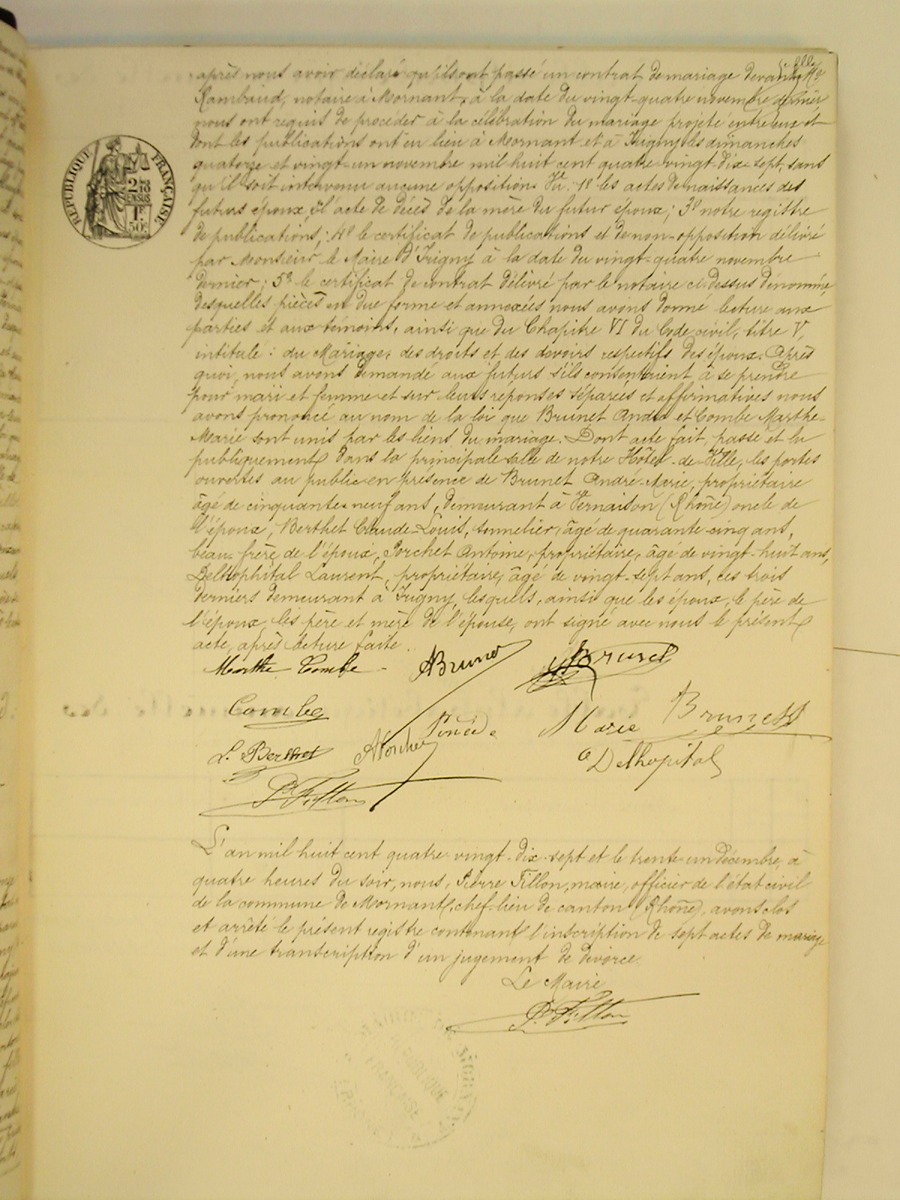 après nous avoir déclaré qu'ils ont passé un contrat de mariage devant Me
Rambaud, notaire à Mornant, à la date du vingt-quatre novembre dernier
nous ont requis de procéder à la célébration du mariage projeté entre eux et
dont les publications ont eu lieu à Mornant et à Irigny les dimanches
quatorze et vingt-un novembre mil huit cent quatre-vingt-dix-sept, sans
qu'il soit intervenu aucune opposition. Vu: 1º les actes de naissances des
futurs époux, 2º l'acte de décès de la mère du futur époux; 3º notre registre
de publications; 4º le certificat de publications et de non-opposition délivré
par Monsieur le Maire d'Irigny à la date du vingt-quatre novembre
dernier; 5º le certificat de contrat délivré par le notaire ci-dessus dénommé,
desquelles pièces en due forme et annexées nous avons donné lecture aux
parties et aux témoins, ainsi que du Chapitre VI du Code civil, titre V,
intitulé: du Mariage, des droits et des devoirs respectifs des époux. Après
quoi, nous avons demandé aux futurs s'ils consentaient à se prendre
pour mari et femme et sur leurs réponses séparées et affirmatives nous
avons prononcé au nom de la loi que Brunet André et Combe Marthe-
Marie sont unis par les liens du mariage. Dont acte fait, passé et lu
publiquement dans la principale salle de notre Hôtel-de-Ville, les portes
ouvertes au public en présence de Brunet André-Marie, propriétaire
âgé de cinquante-neuf ans, demeurant à Vernaison (Rhône) oncle de
l'époux, Berthet Claude-Louis, tonnelier, âgé de quarante-cinq ans,
beau-frère de l'époux, Porchet Antoine, propriétaire, âgé de vingt-huit ans,
Delhophital Laurent, propriétaire, âgé de vingt-sept ans, ces trois
derniers demeurant à Irigny, lesquels, ainsi que les époux, le père de
l'époux, les père et mère de l'épouse, ont signé avec nous le présent
acte, après lecture faite.
Marthe Combe ABrunet Brunet
Combe Marie Brunet
L. Berthet APorchet
Delhopital
P. Fillon
L'an mil huit cent quatre-vingt-dix-sept et le trente-un décembre, à
quatre heures du soir, nous, Pierre Fillon, maire, officier de l'état civil
de la commune de Mornant, chef-lieu de canton (Rhône), avons clos
et arrêté le présent registre contenant l'inscription de sept actes de mariage
et d'une transcription d'un jugement de divorce.
Le Maire
P. Fillon
RÉPUBLIQUE FRANÇAISE